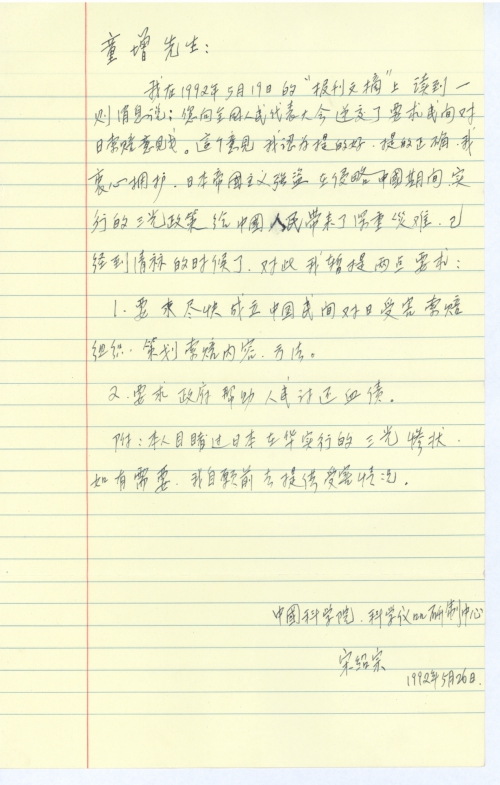 童增先生：
我在1992年5月19日的“报刊文摘”上读到一
则消息说：您向全国人民代表大会递交了要求民间对
日索赔意见书。这个意见我认为提的好，提的正确，我
衷心拥护，日本帝国主义强盗在侵略中国期间，实
行的三光政策给中国人民带来了深重灾难，已
经到清算的时候了，对此我暂提两点要求：
1. 要求尽快成立中国民间对日受害索赔
组织，策划索赔内容，方法。
2. 要求政府帮助人民讨还血债。
附：本人目睹过日本在华实行的三光惨状，
如有需要，我自愿前去提供受害情况。
中国科学院，科学仪器研制中心
宋绍宗
1992年5月26日.